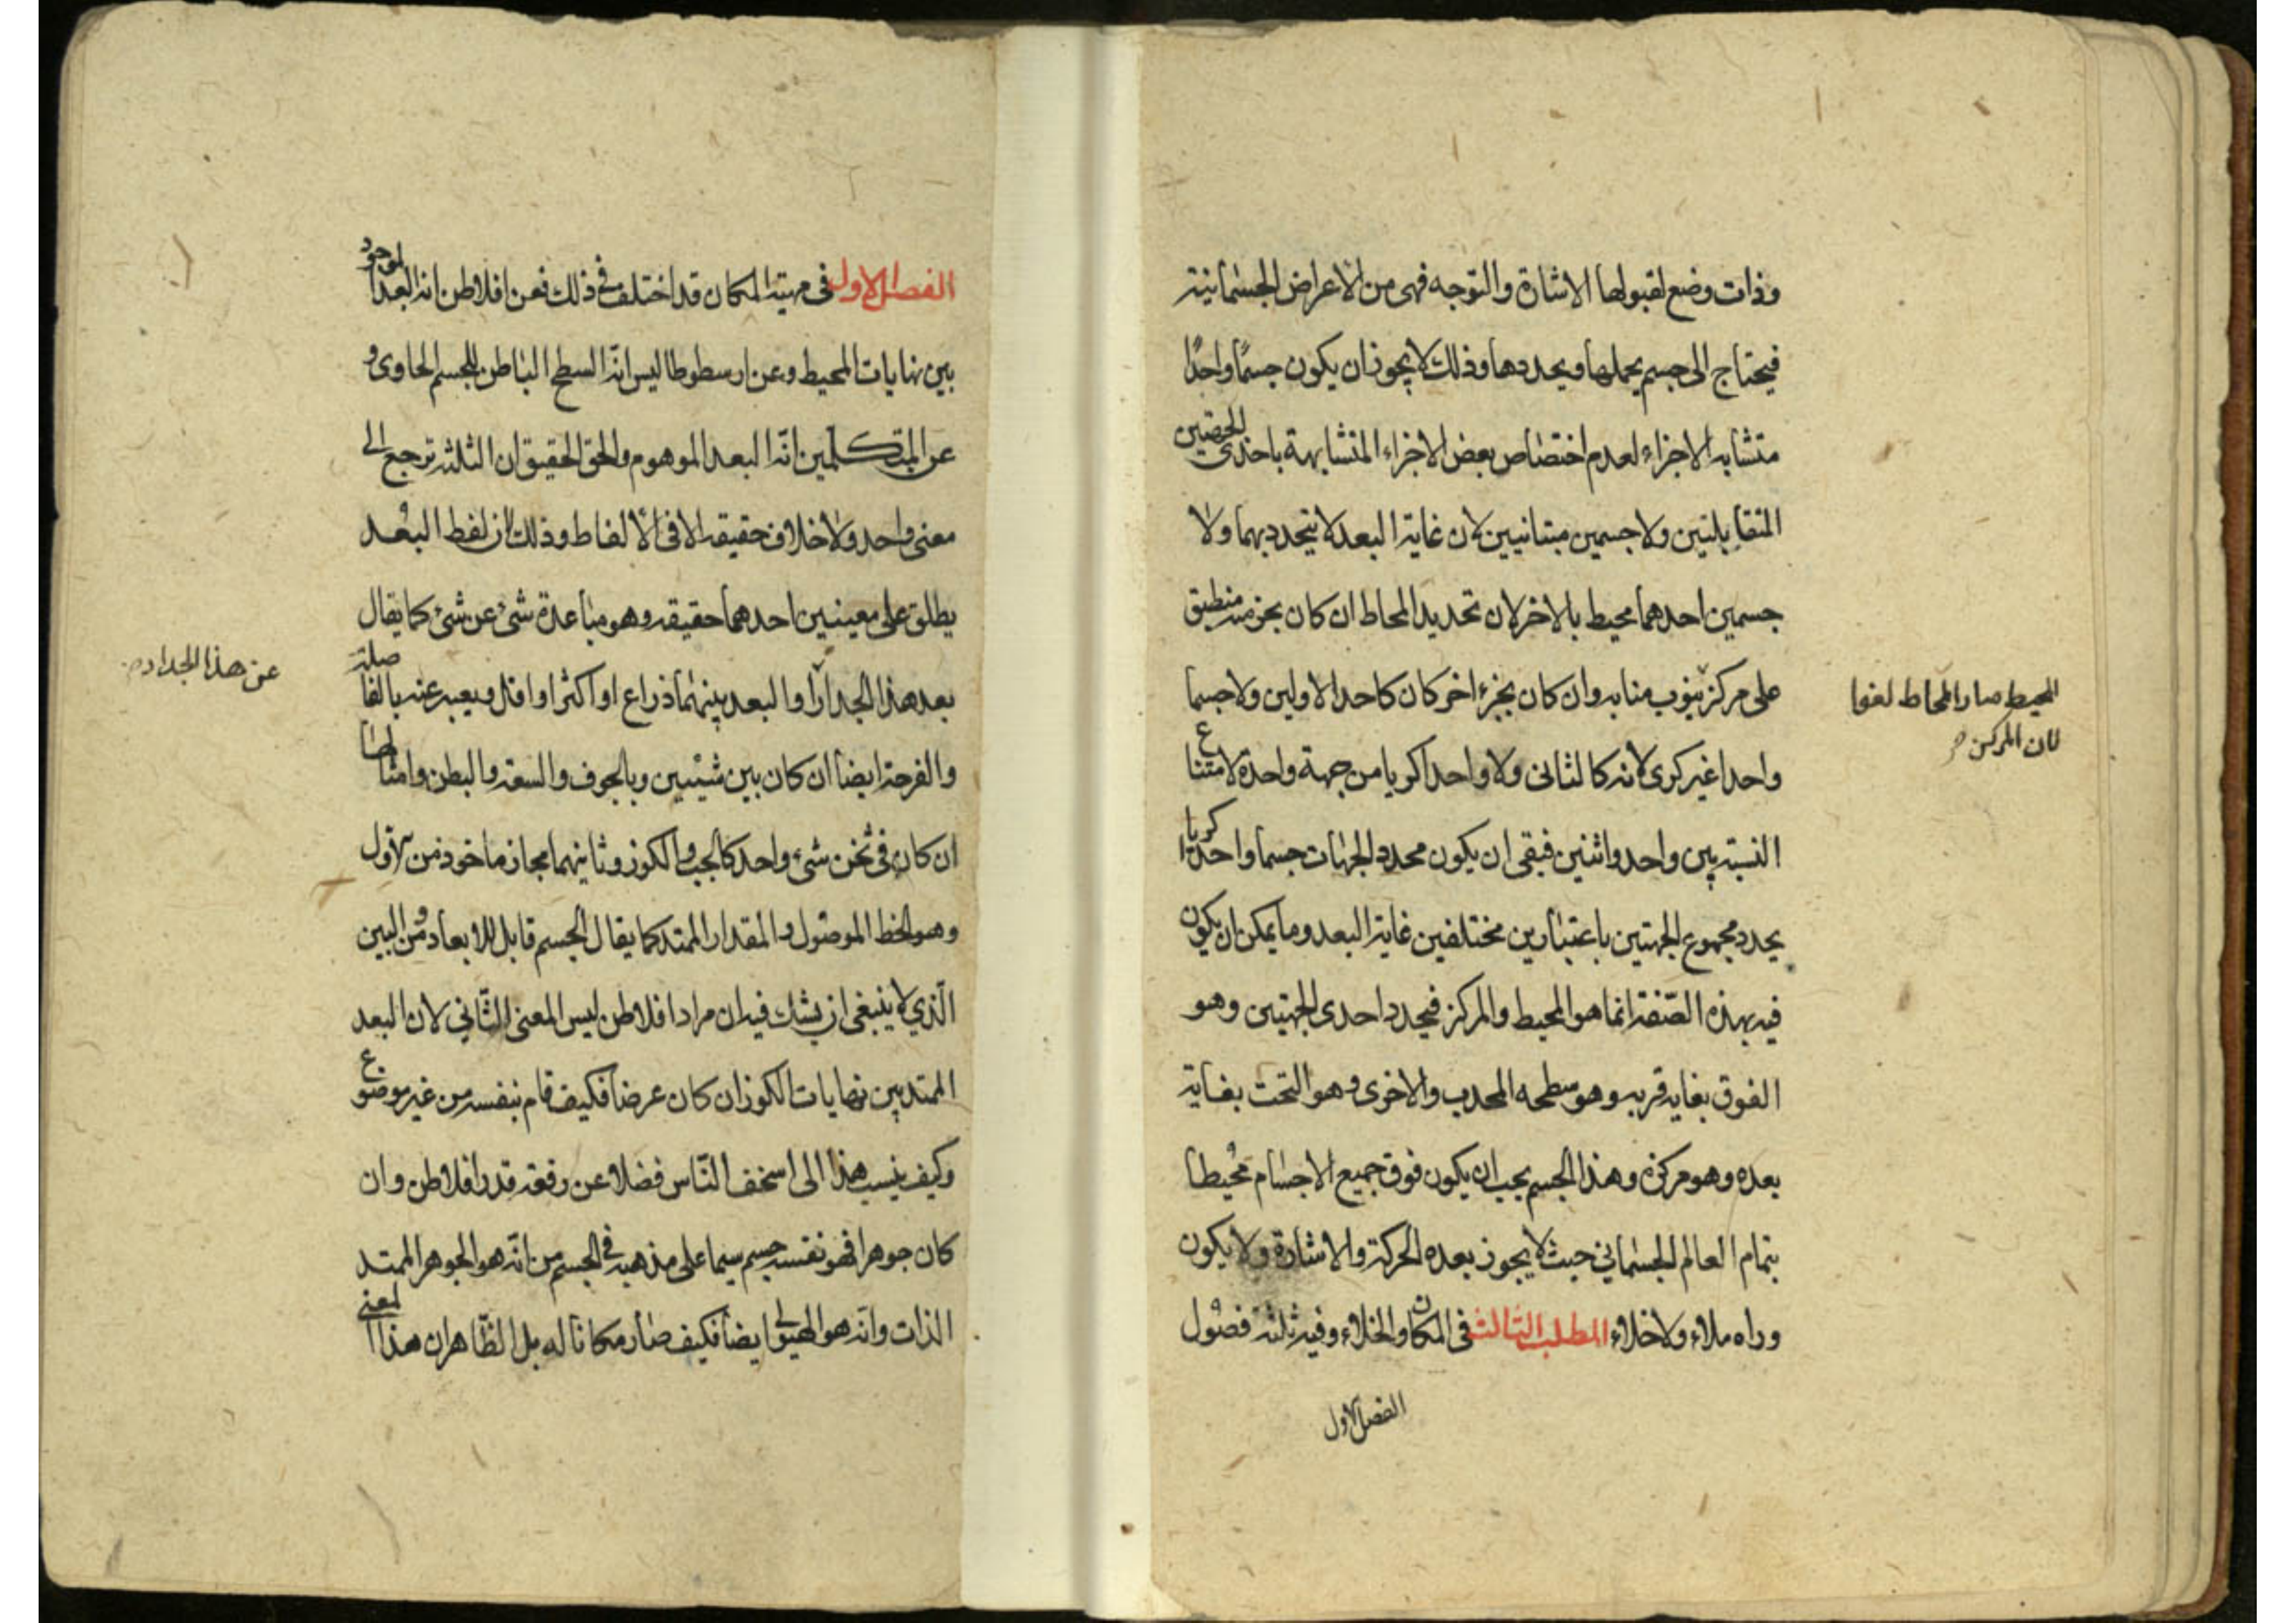 وذات وضع لقبولها الاشارة والتوجه فهى من الاعراض الجسمانية
فيحتاج الى جسم يحملها ويحددها وذلك لا يجوز ان يكون جسمًا واحدًا
متشابه الاجزاء لعدم اختصاص بعض الاجزاء المتشابهة باحدى الجهتين
المتقابلتين ولا جسمين متباينيين لان غاية البعد لا يتحدد بهما ولا
جسمين احدهما محيط بالاخر لان تحديد المحاط ان كان بجزء منه منطبق
على مركز ينوب منابه وان كان بجزء اخر كان كاحد الاولين ولا جسما
المحيط صار المحاط لغوا
لان المركز
واحدا غير كرى لانه كالثانى ولا واحدا كريا من جهة واحدة لامتناع
النسبة بين واحد واثنين فبقى ان يكون محدد الجهات جسما واحدا كريا
يحدد مجموع الجهتين باعتبارين مختلفين غاية البعد وما يمكن ان يكون
فيه بهذه الصّفة انما هو المحيط والمركز فيحدد احدى الجهتين وهو
الفوق بغاية قربه وهو سطحه المحدب والاخرى وهو التحت بغاية
بعده وهو مركزه وهذا الجسم يجب ان يكون فوق جميع الاجسام محيطا
بتمام العالم الجسمانى حيث لا يجوز بعده الحركة والاشارة ولا يكون
وراه ملاء ولا خلاء المطلب الثالث فى المكان والخلاء وفيه ثلثة فصول
الفصل الاول
الفصل الاول فى مهية المكان قد اختلف فى ذلك فعن افلاطن انه البعد الموجود
بين نهايات المحيط وعن ارسطوطاليس انّه السطح الباطن للجسم الحاوى و
عن المتكلمين انّه البعد الموهوم والحق الحقيق ان الثلثة ترجع الى
معنى واحد ولا خلاف حقيقة الا فى الالفاظ وذلك لان لفظ البُعد
يطلق على معينين احدهما حقيقة وهو مباعدة شىء عن شىء كما يقال
بعد هذا الجدار او البعد بينهما ذراع او اكثر او اقل ويعبر عنه بالفاصلة
عن هذا الجدار
والفرجة ايضا ان كان بين شيئين وبالجوف والسعة والبطن وامثالها
ان كان فى ثخن شىء واحد كالجب والكوز وثانيهما مجاز ماخوذ من الاول
وهو الخط الموصول والمقدار الممتد كما يقال الجسم قابل للابعاد ومن البين
الّذي لا ينبغى ان يشك فيه ان مراد افلاطن ليس المعنى الثّاني لان البعد
الممتد بين نهايات الكوز ان كان عرضا فكيف قام بنفسه من غير موضوع
وكيف ينسب هذا الى اسخف النّاس فضلا عن رفعة قدر افلاطن وان
كان جوهرا فهو نفسه جسم سيما على مذهبه فى الجسم من انّه هو الجوهر الممتد
الذات وانه هو الهيولى ايضا فكيف صار مكانا له بل الظّاهر ان هذا المعنى